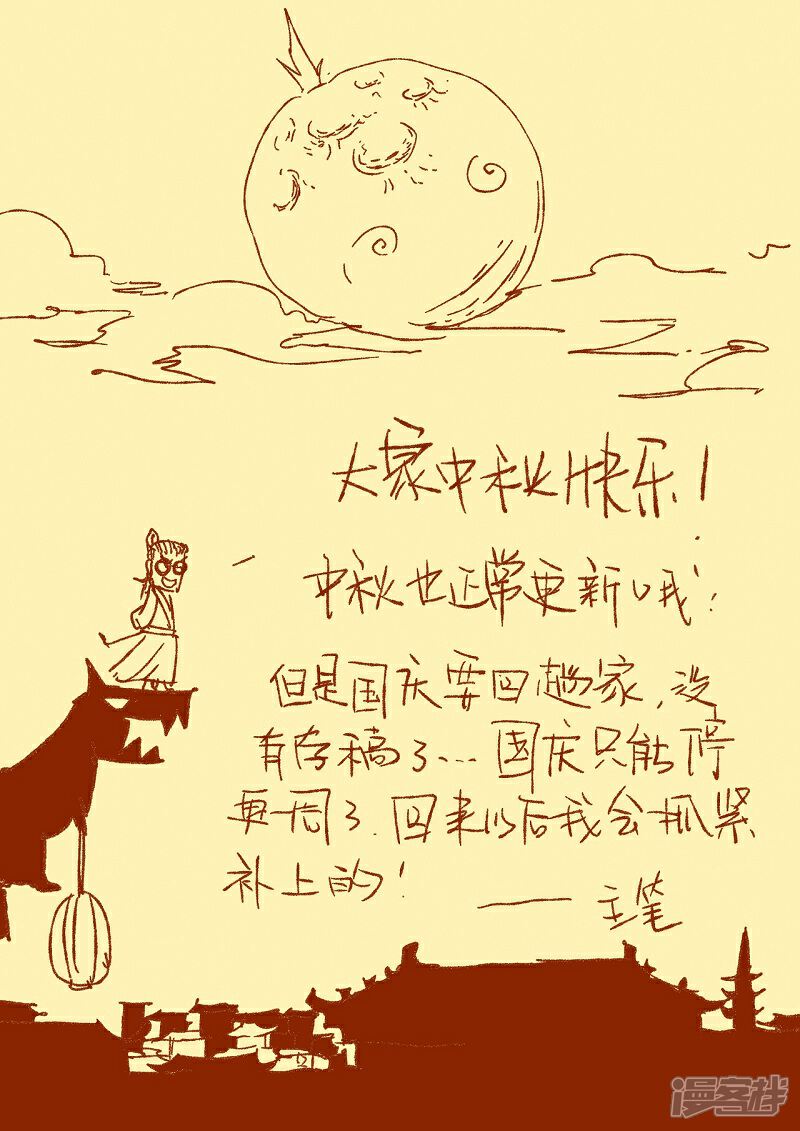 大家中秋快乐！
中秋也正常更新哦！
但是国庆要回趟家，没
有存稿了…国庆只能停
更一周了.回来以后我会抓紧
补上的！ ——主笔
漫客栈